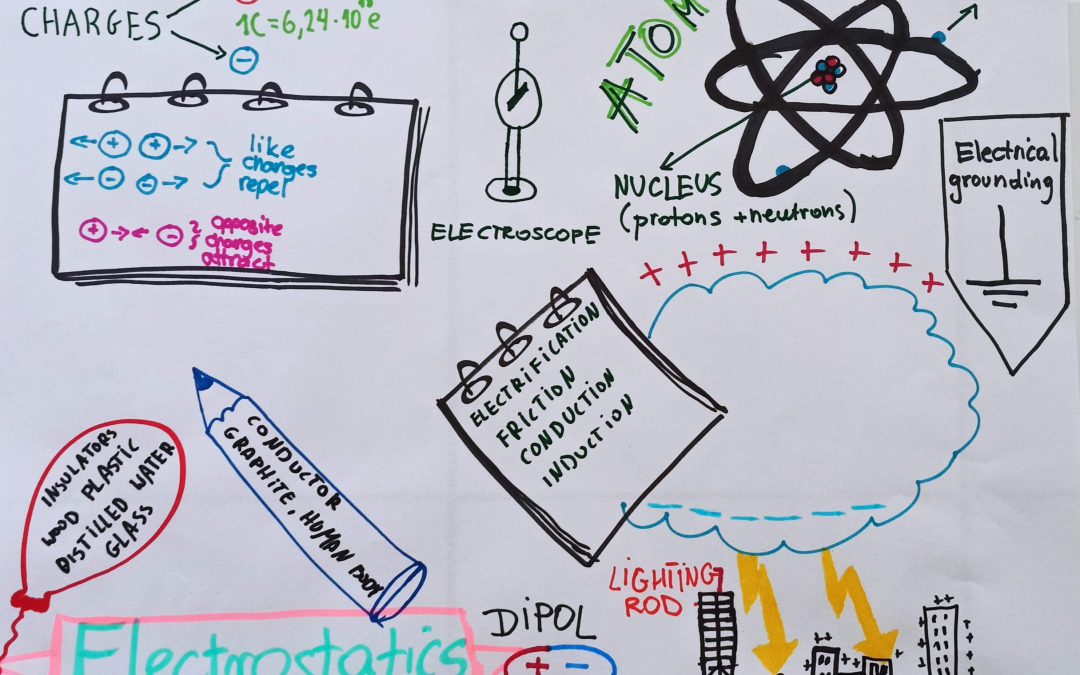 CHARGES
1C=6,24·10¹⁸e
−
+ + like
charges
− − repel
+ − opposite
charges
attract
ELECTROSCOPE
ATOM
NUCLEUS
(protons + neutrons)
Electrical
grounding
+ + + + + + + +
ELECTRIFICATION
FRICTION
CONDUCTION
INDUCTION
INSULATORS
WOOD PLASTIC
DISTILLED WATER
GLASS
CONDUCTOR
GRAPHITE, HUMAN BODY
LIGHTING
ROD
DiPOL
+ −
Electrostatics